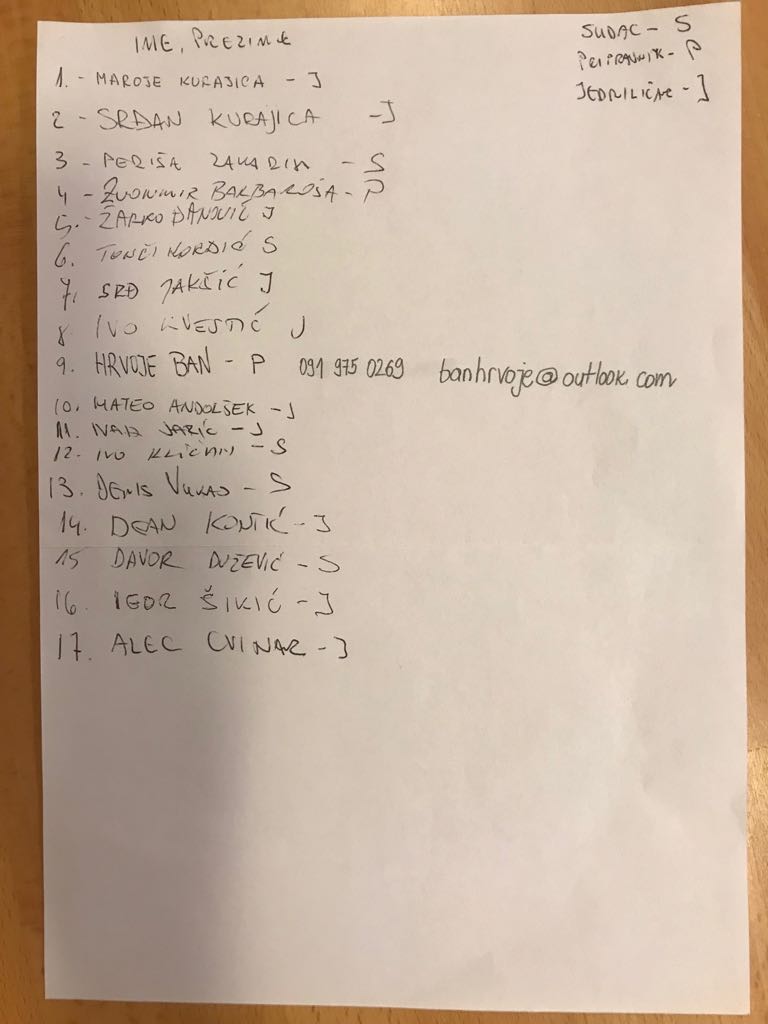 IME, PREZIME
SUDAC - S
PRIPRAVNIK - P
JEDRILIČAR - J
1. - MAROJE KURAJICA - J
2 - SRĐAN KURAJICA - J
3 - PERIŠA - S
4 - ZVONIMIR BARBAROŠA - P
5. - ŽARKO ĐANOVIĆ J
6. TONČI KORDIĆ S
7. SRĐ JAKŠIĆ J
8. IVO J
9. HRVOJE BAN - P 091 975 0269 banhrvoje@outlook.com
10. MATEO ANDOLŠEK - J
11. IVAN JARIĆ - J
12. IVO - S
13. DENIS - S
14. DEAN KONTIĆ - J
15 DAVOR DUŽEVIĆ - S
16. IGOR ŠIKIĆ - J
17. ALEC CVINAR - J